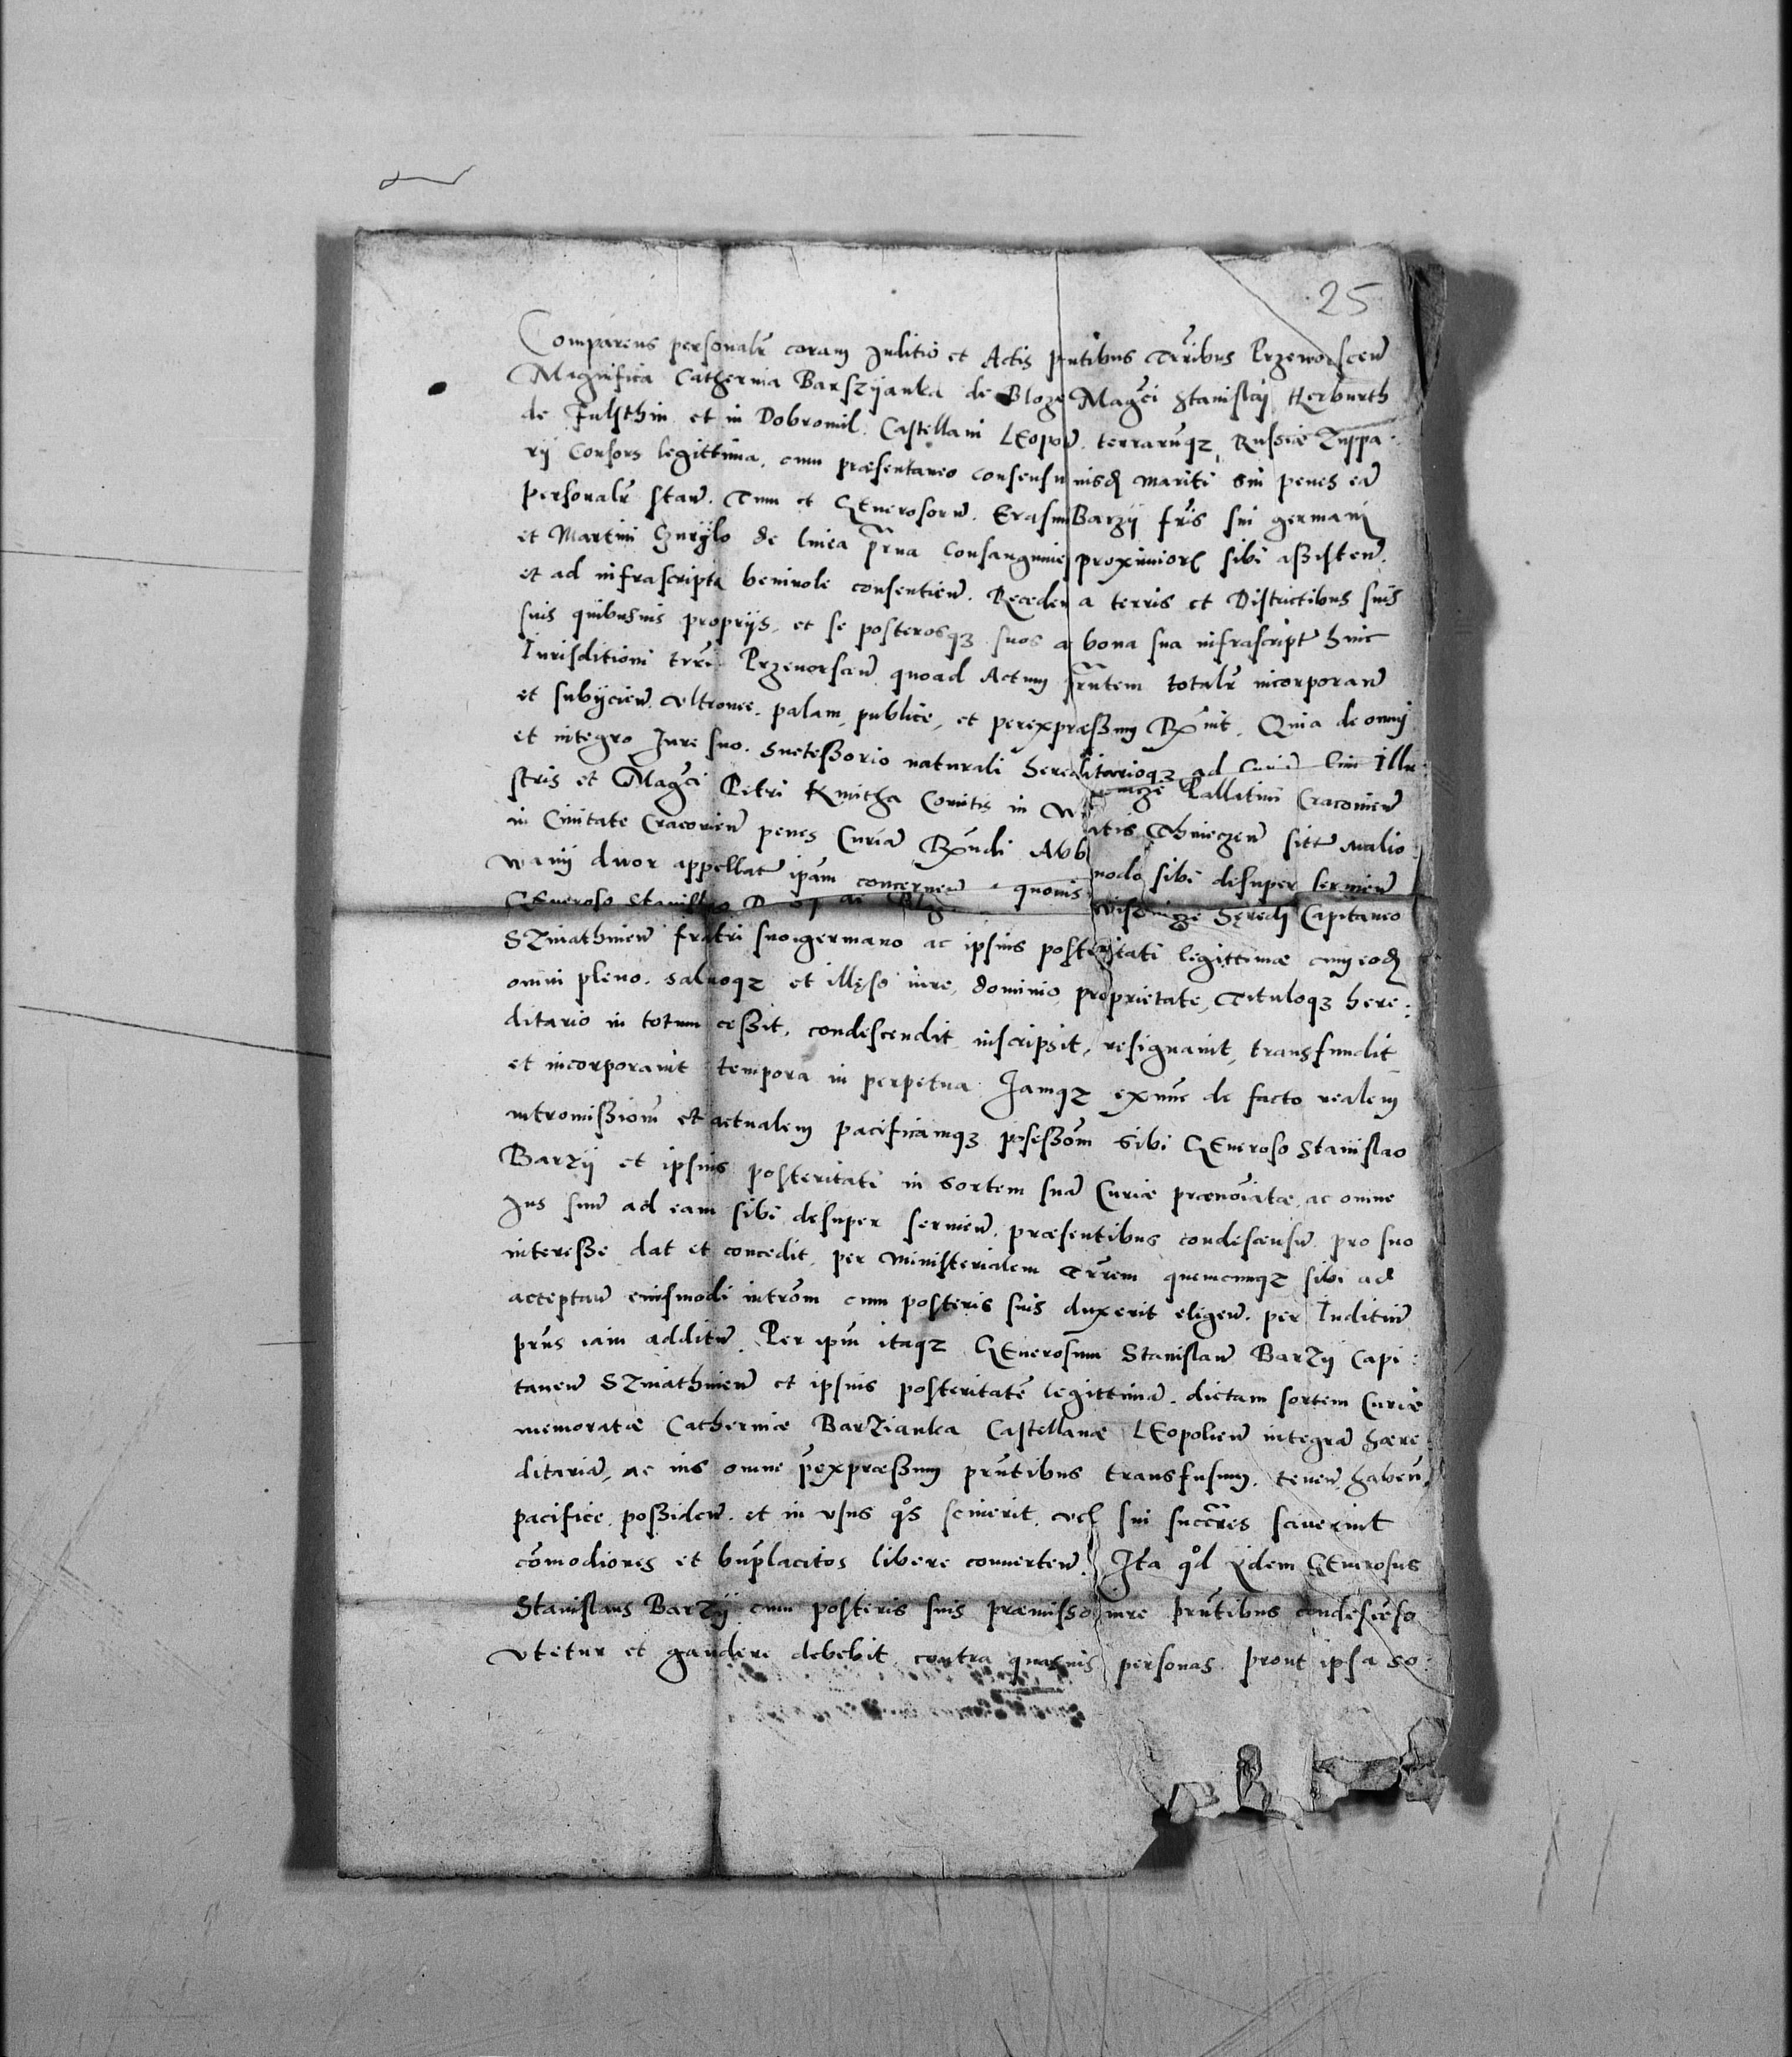 25
Comparens personalr̃ coram Juditio et Actis pñtibus Trr̃ibus Przeworscen̄
Magnifica Catherina Barszyanka de Bloze Magc̃i Stanislaj Herburth
de Fulsthin et in Dobromil. Castellani LEopoĺ. terrarūqꝫ Russiæ Zuppa:
rij Consors legittima, cum præsentaneo consensu mariti sui penes eā
personalr̃ stan̄. Tum et GEnerosorū. Erasmi Barzij fr̃is sui germanj
et Martini Gurÿlo de linea Consanguinei proximiorꝭ sibi assisten̄.
et ad infrascripta beniuole consentien̄. Receden a terris et Districtibus suis
suis quibusuis proprijs, et se posterosqꝫ suos a bona sua infrascript̄ huic
Iurisditioni trr̃i Przeuorscen̄ quoad Actum pr̃ntem totalr̃ incorporan̄
et subijcien̄. Vltronee. palam, publice, et perexpræssum Rx̃uit. Quia de omnj
et integro Jure suo. Suctessorio naturali hereditarioqꝫ ad Illu:
stris et Magc̃i Petri Kmitha Comitis in Pallatini Cracouien̄
in Ciuitate Cracouien̄ penes Curiā Rx̃ndi Abb atis Thinczen̄ sitt̄ walio:
wanÿ dwor appellat̄ ipām concernen̄ quouis modo sibi desuper seruien̄
GEneroso Stanislao hęredj Capitaneo
SZniathinen̄ fratri suo germano ac ipsius posteritati legittimæ cum eodꝫ
omni pleno. saluoqꝫ et illęso iure, dominio, proprietate, Tituloqꝫ here:
ditario in totum cessit, condescendit inscripsit, resignauit, transfundit
et incorporauit tempora in perpetua Jamqꝫ exnūc de facto realem
intromissionē et actualem pacificamqꝫ posessōm sibi GEneroso Stanislao
Barzij et ipsius posteritati in sortem suā Curiæ prænoīatæ, ac omne
Jus suū ad eam sibi desuper seruien̄. præsentibus condescensū pro suo
interesse dat et concedit, per Ministerialem Trr̃em quemcumqꝫ sibi ad
acceptan̄ eiusmodi intrōm cum posteris suis duxerit eligen̄. per Juditiū
prn̄s iam additū. Per ipm̄ itaqꝫ GEnerosum Stanislaū Barzij Capi:
taneū SZniathinen̄ et ipsius posteritatē legittimā. dictam sortem Curiæ
memoratæ Catherinæ Barzianka Castellanæ LEopolien̄ integrā hære:
ditariā, ac ius omne p̄expræssum prn̄tibus transfusum, tenen̄, haben̄,
pacifice. possiden̄. et in vsus qͦs sciuerit, vel sui succr̃es sciuerint
cōmodiores et bn̄placitos libere conuerten̄. Ita qͦd idem GEnerosus
Stanislaus Barzij cum posteris suis præmisso iure prn̄tibus condescēso
vtetur et gaudere debebit contra quasuis personas. prout ipsa so: